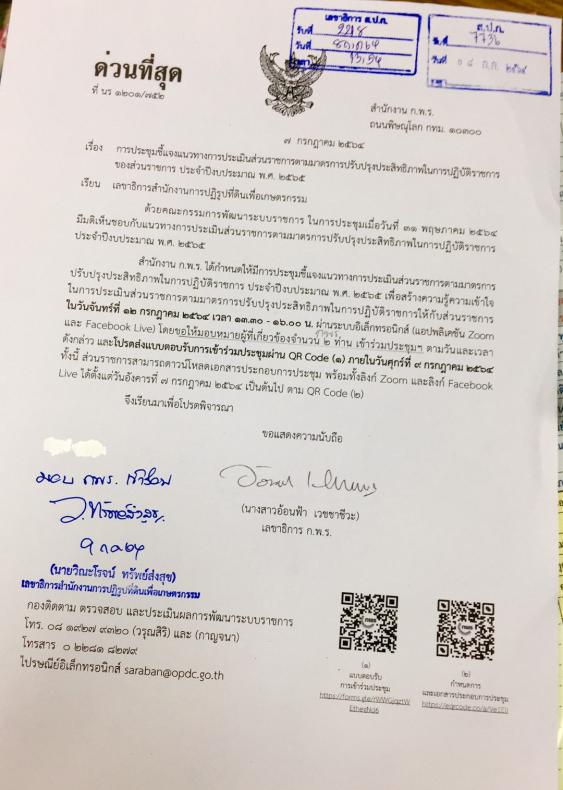 เลขาธิการ ส.ป.ก.
รับที่ 228
วันที่
เวลา 15.54
ส.ป.ก.
7736
วันที่ ๐๘ ก.ค. ๒๕๖๔
ด่วนที่สุด
ที่ นร ๑๒๐๑/๗๕๒
สำนักงาน ก.พ.ร.
ถนนพิษณุโลก กทม. ๑๐๓๐๐
๗ กรกฎาคม ๒๕๖๔
เรื่อง การประชุมชี้แจงแนวทางการประเมินส่วนราชการตามมาตรการปรับปรุงประสิทธิภาพในการปฏิบัติราชการ
ของส่วนราชการ ประจำปีงบประมาณ พ.ศ. ๒๕๖๕
เรียน เลขาธิการสำนักงานการปฏิรูปที่ดินเพื่อเกษตรกรรม
ด้วยคณะกรรมการพัฒนาระบบราชการ ในการประชุมเมื่อวันที่ ๓๑ พฤษภาคม ๒๕๖๔
มีมติเห็นชอบกับแนวทางการประเมินส่วนราชการตามมาตรการปรับปรุงประสิทธิภาพในการปฏิบัติราชการ
ประจำปีงบประมาณ พ.ศ. ๒๕๖๕
สำนักงาน ก.พ.ร. ได้กำหนดให้มีการประชุมชี้แจงแนวทางการประเมินส่วนราชการตามมาตรการ
ปรับปรุงประสิทธิภาพในการปฏิบัติราชการ ประจำปีงบประมาณ พ.ศ. ๒๕๖๕ เพื่อสร้างความรู้ความเข้าใจ
ในการประเมินส่วนราชการตามมาตรการปรับปรุงประสิทธิภาพในการปฏิบัติราชการให้กับส่วนราชการ
ในวันจันทร์ที่ ๑๒ กรกฎาคม ๒๕๖๔ เวลา ๑๓.๓๐ - ๑๖.๐๐ น. ผ่านระบบอิเล็กทรอนิกส์ (แอปพลิเคชัน Zoom
และ Facebook Live) โดยขอให้มอบหมายผู้ที่เกี่ยวข้องจำนวน ๒ ท่าน เข้าร่วมประชุมฯ ตามวันและเวลา
ดังกล่าว และโปรดส่งแบบตอบรับการเข้าร่วมประชุมผ่าน QR Code (๑) ภายในวันศุกร์ที่ ๙ กรกฎาคม ๒๕๖๔
ทั้งนี้ ส่วนราชการสามารถดาวน์โหลดเอกสารประกอบการประชุม พร้อมทั้งลิงก์ Zoom และลิงก์ Facebook
Live ได้ตั้งแต่วันอังคารที่ ๗ กรกฎาคม ๒๕๖๔ เป็นต้นไป ตาม QR Code (๒)
จึงเรียนมาเพื่อโปรดพิจารณา
ขอแสดงความนับถือ
มอบ กพร. เข้าร่วม
(นางสาวอ้อนฟ้า เวชชาชีวะ)
เลขาธิการ ก.พ.ร.
๙ กค ๖๔
(นายวิณะโรจน์ ทรัพย์ส่งสุข)
เลขาธิการสำนักงานการปฏิรูปที่ดินเพื่อเกษตรกรรม
กองติดตาม ตรวจสอบ และประเมินผลการพัฒนาระบบราชการ
โทร. ๐๘ ๑๙๒๗ ๙๓๒๐ (วรุณสิริ) และ (กาญจนา)
โทรสาร ๐ ๒๒๘๑ ๘๒๗๙
ไปรษณีย์อิเล็กทรอนิกส์ saraban@opdc.go.th
(๑)
แบบตอบรับ
การเข้าร่วมประชุม
(๒)
กำหนดการ
และเอกสารประกอบการประชุม